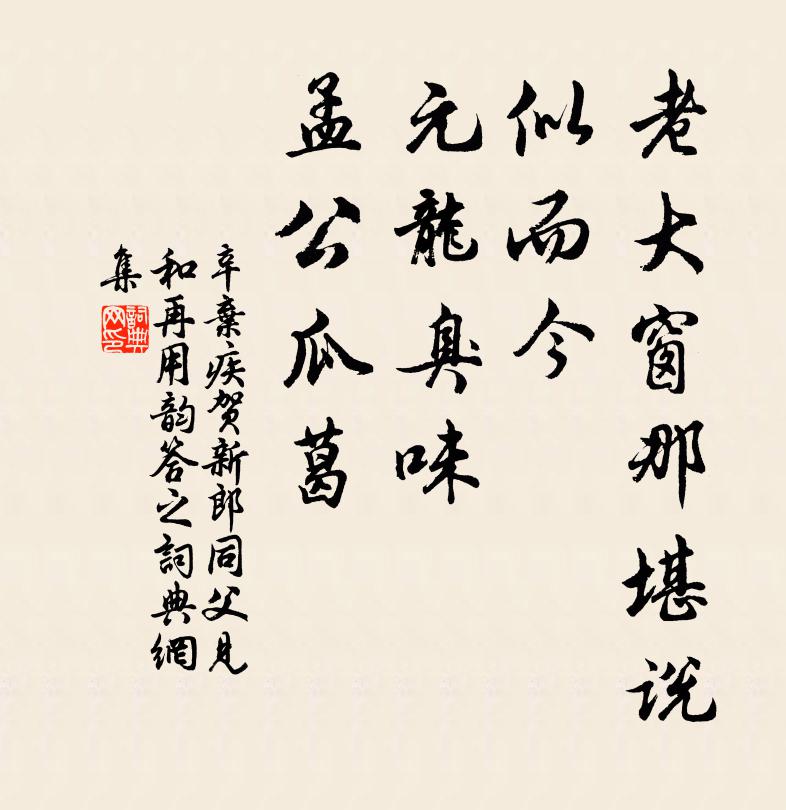 老大窗那堪説
似而今
元龍臭味
孟公瓜葛
辛棄疾賀新郎同父見
和再用韵答之詞典網
集
詞典
网印